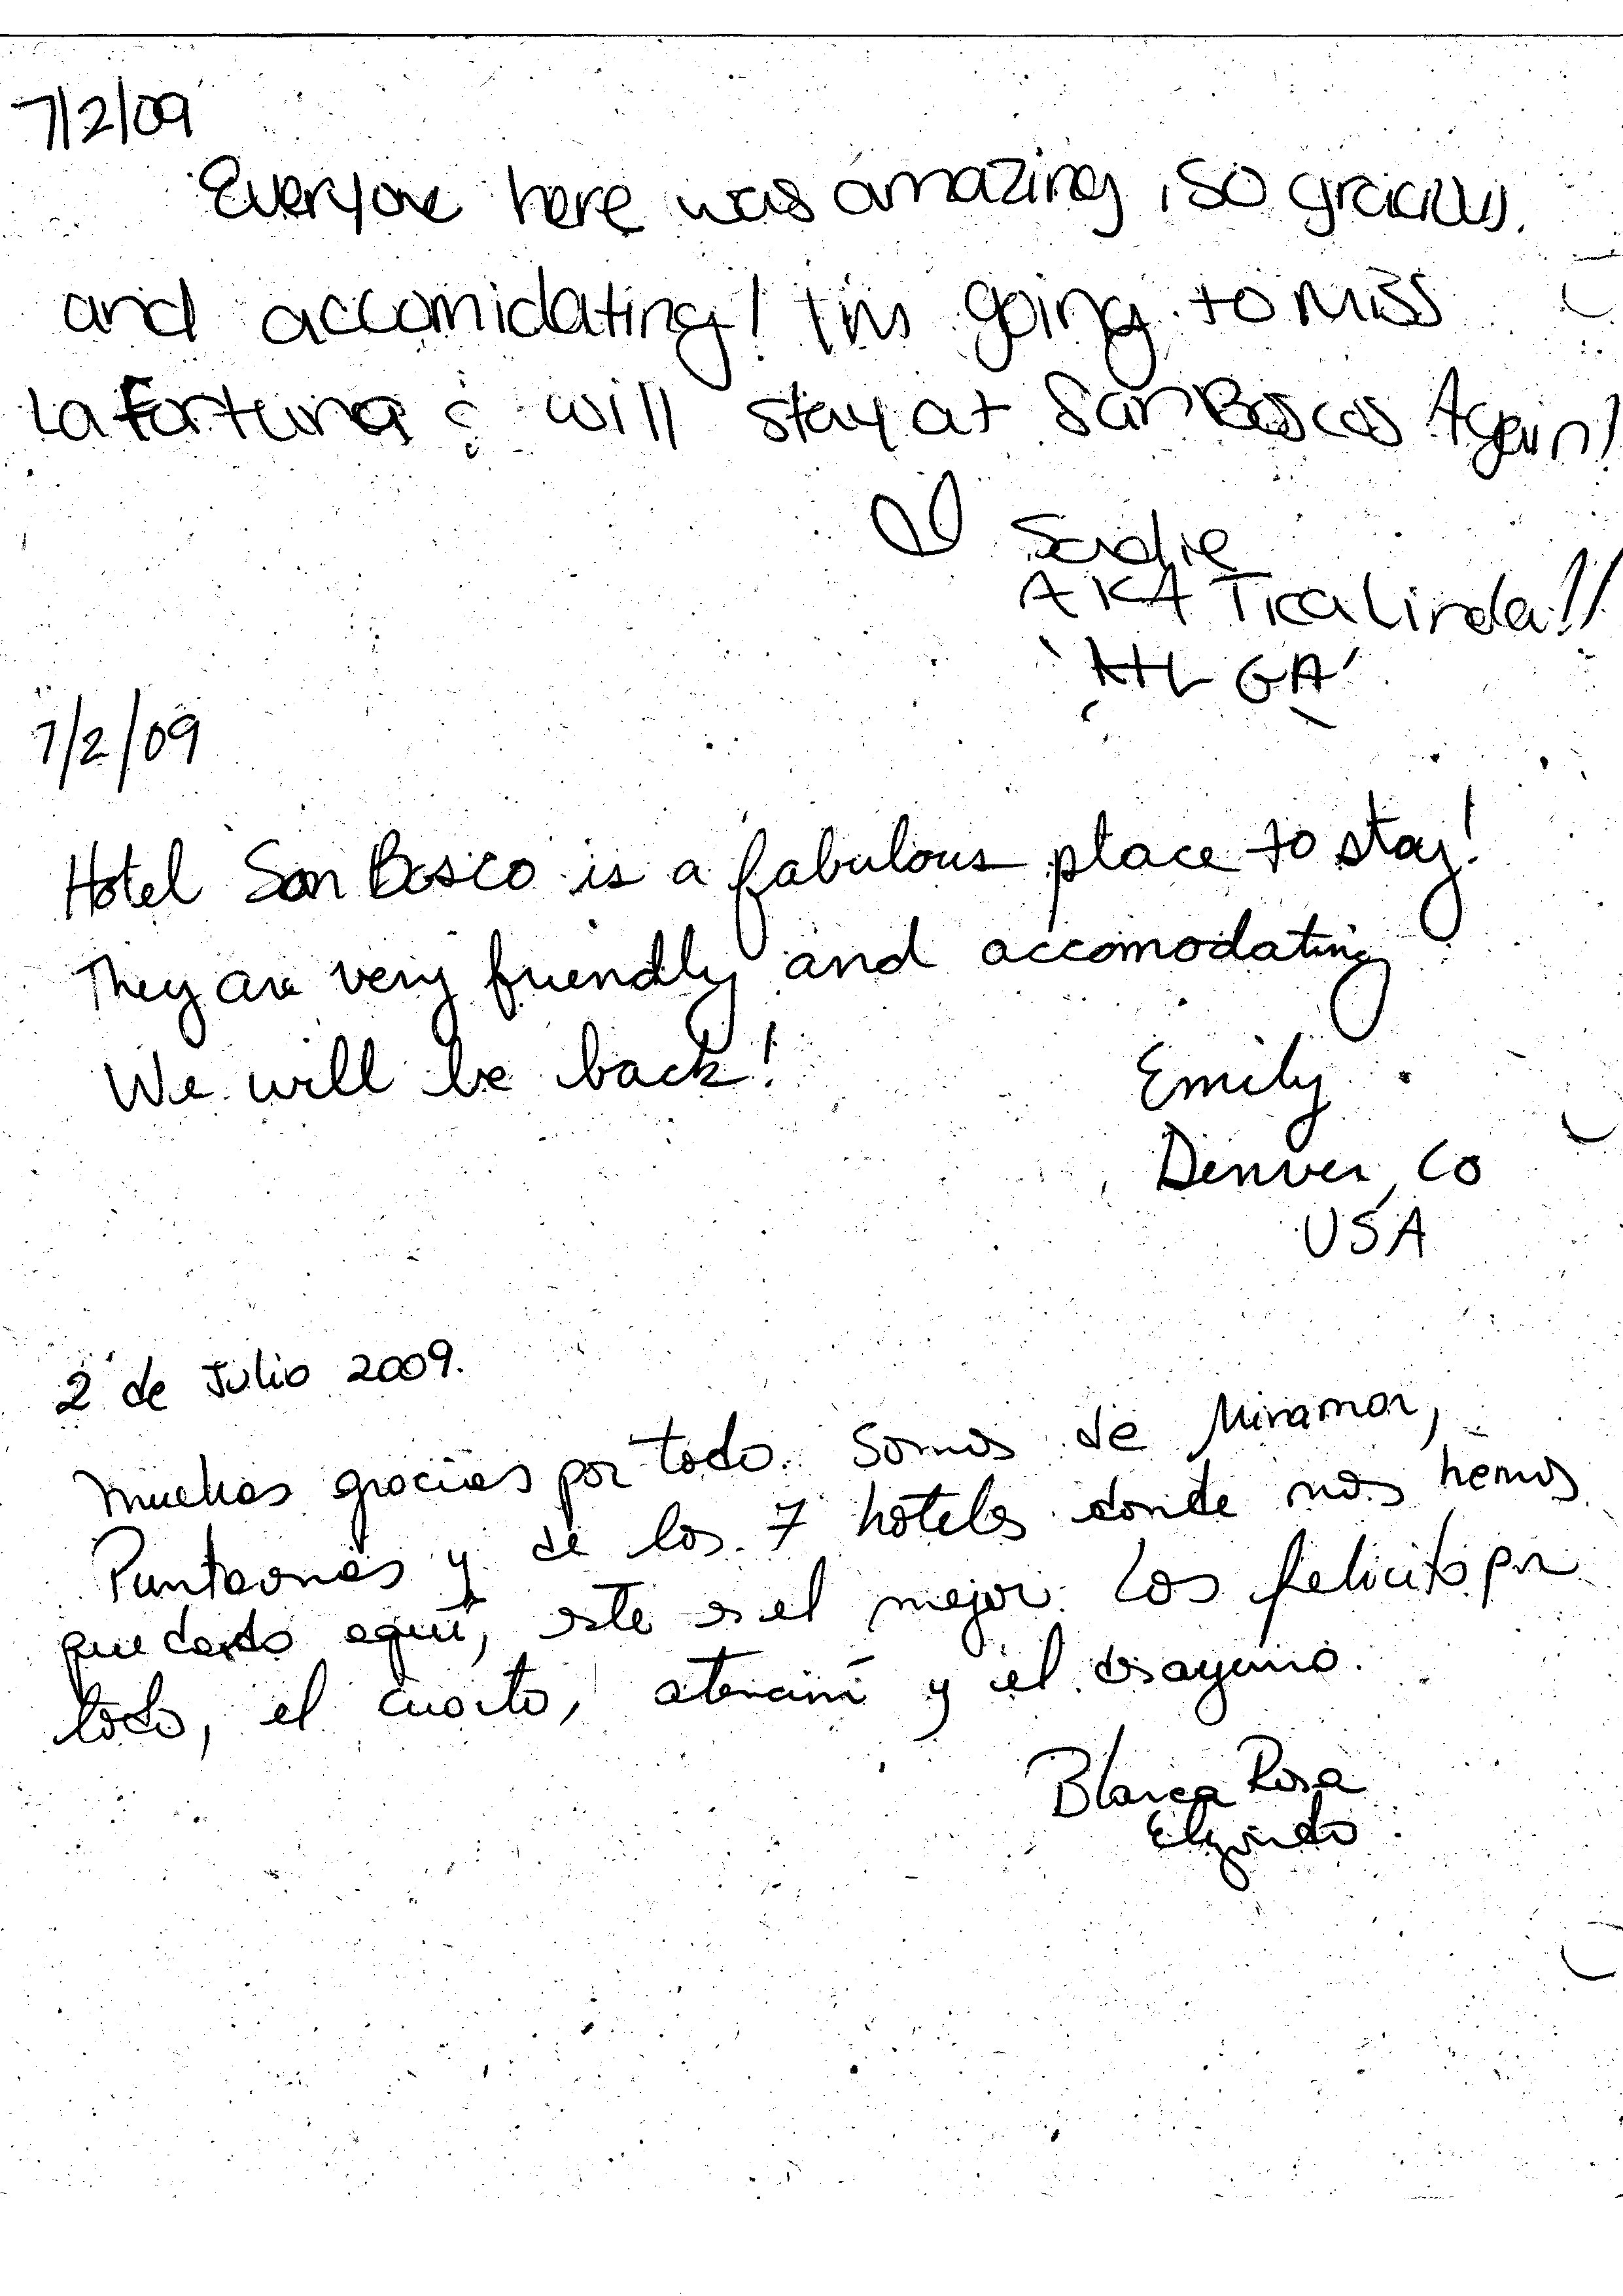 7/2/09
Everyone here was amazing, so gracious
and accomidating! I'm going to miss
La Fortuna & will stay at San Boscos Again!
Sadie
AKA Tica Linda!!
ATL GA
7/2/09
Hotel San Bosco is a fabulous place to stay!
They are very friendly and accomodating
We will be back!
Emily
Denver, CO
USA
2 de Julio 2009.
Muchas gracias por todo. Somos de Miramar,
Puntarenas y de los 7 hoteles donde nos hemos
quedado aquí, este es el mejor. Los felicito por
todo, el cuarto, atención y el desayuno.
Blanca Rosa